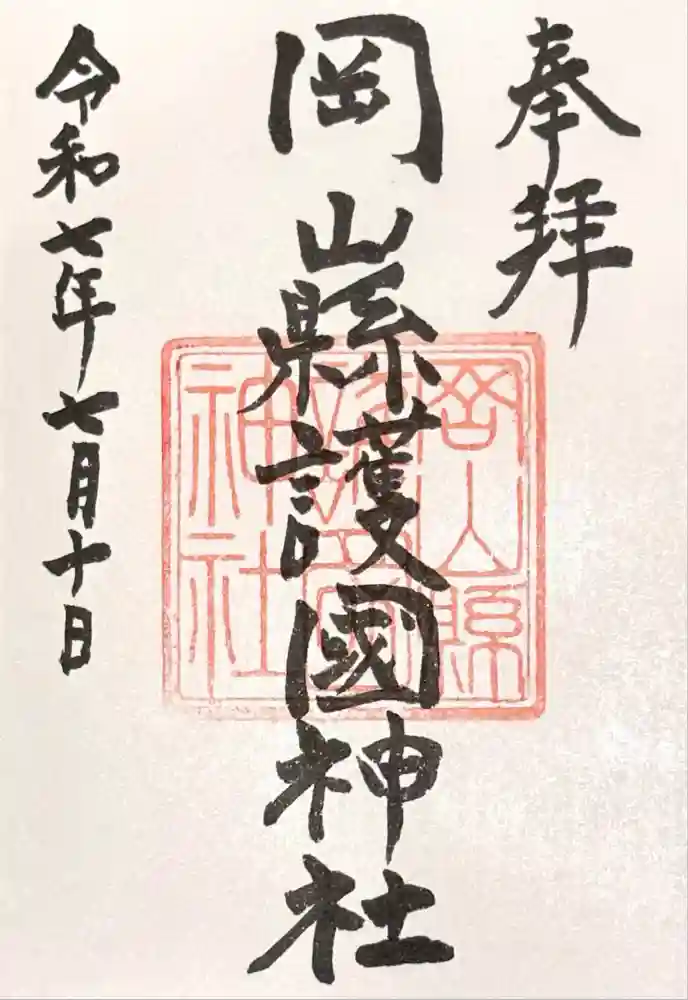 奉拝
岡山縣護國神社
令和七年七月十日
岡山縣
護國
神社